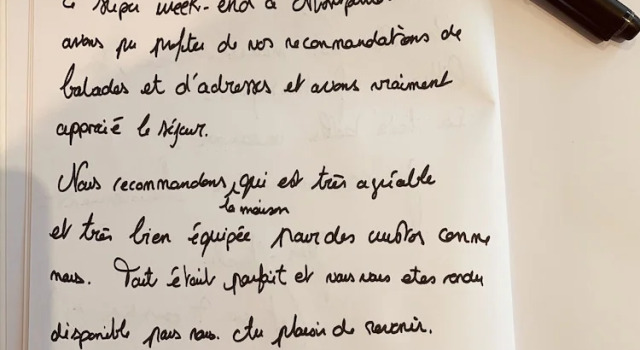 ce super week-end à
avons pu profiter de vos recommandations de
balades et d'adresses et avons vraiment
apprécié le séjour.
Nous recommandons, qui est très agréable
la maison
et très bien équipée pour des comme
nous. Tout était parfait et vous vous etes rendu
disponible pour nous. Au plaisir de revenir.